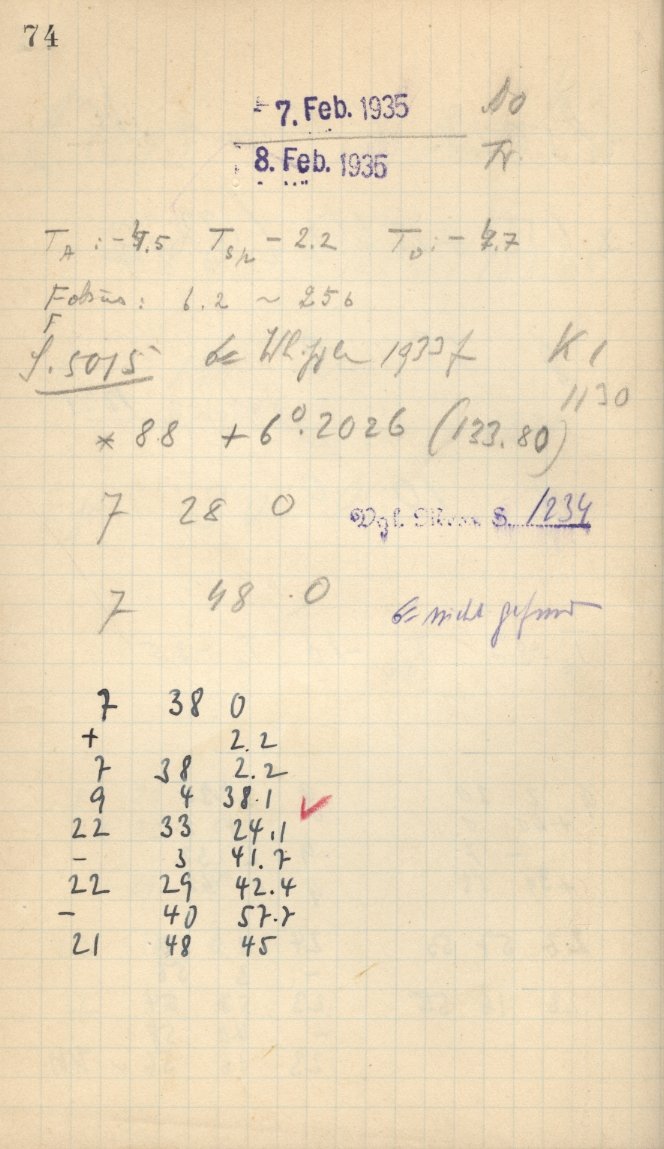 74
- 7. Feb. 1935 Do
8. Feb. 1935 Fr.
T_A : -4.5 T_Sp - 2.2 T_O : - 4.7
Fokus: 6.2 ~ 256
F
S. 5015 Whipple 1933 f K 1
1130
* 8.8 + 6°.2026 (133.80)
7 28 0 Vgl. S. 1234
7 48 0 nicht gefund
7 38 0
+ 2.2
7 38 2.2
9 4 38.1 ✓
22 33 24.1
- 3 41.7
22 29 42.4
- 40 57.7
21 48 45